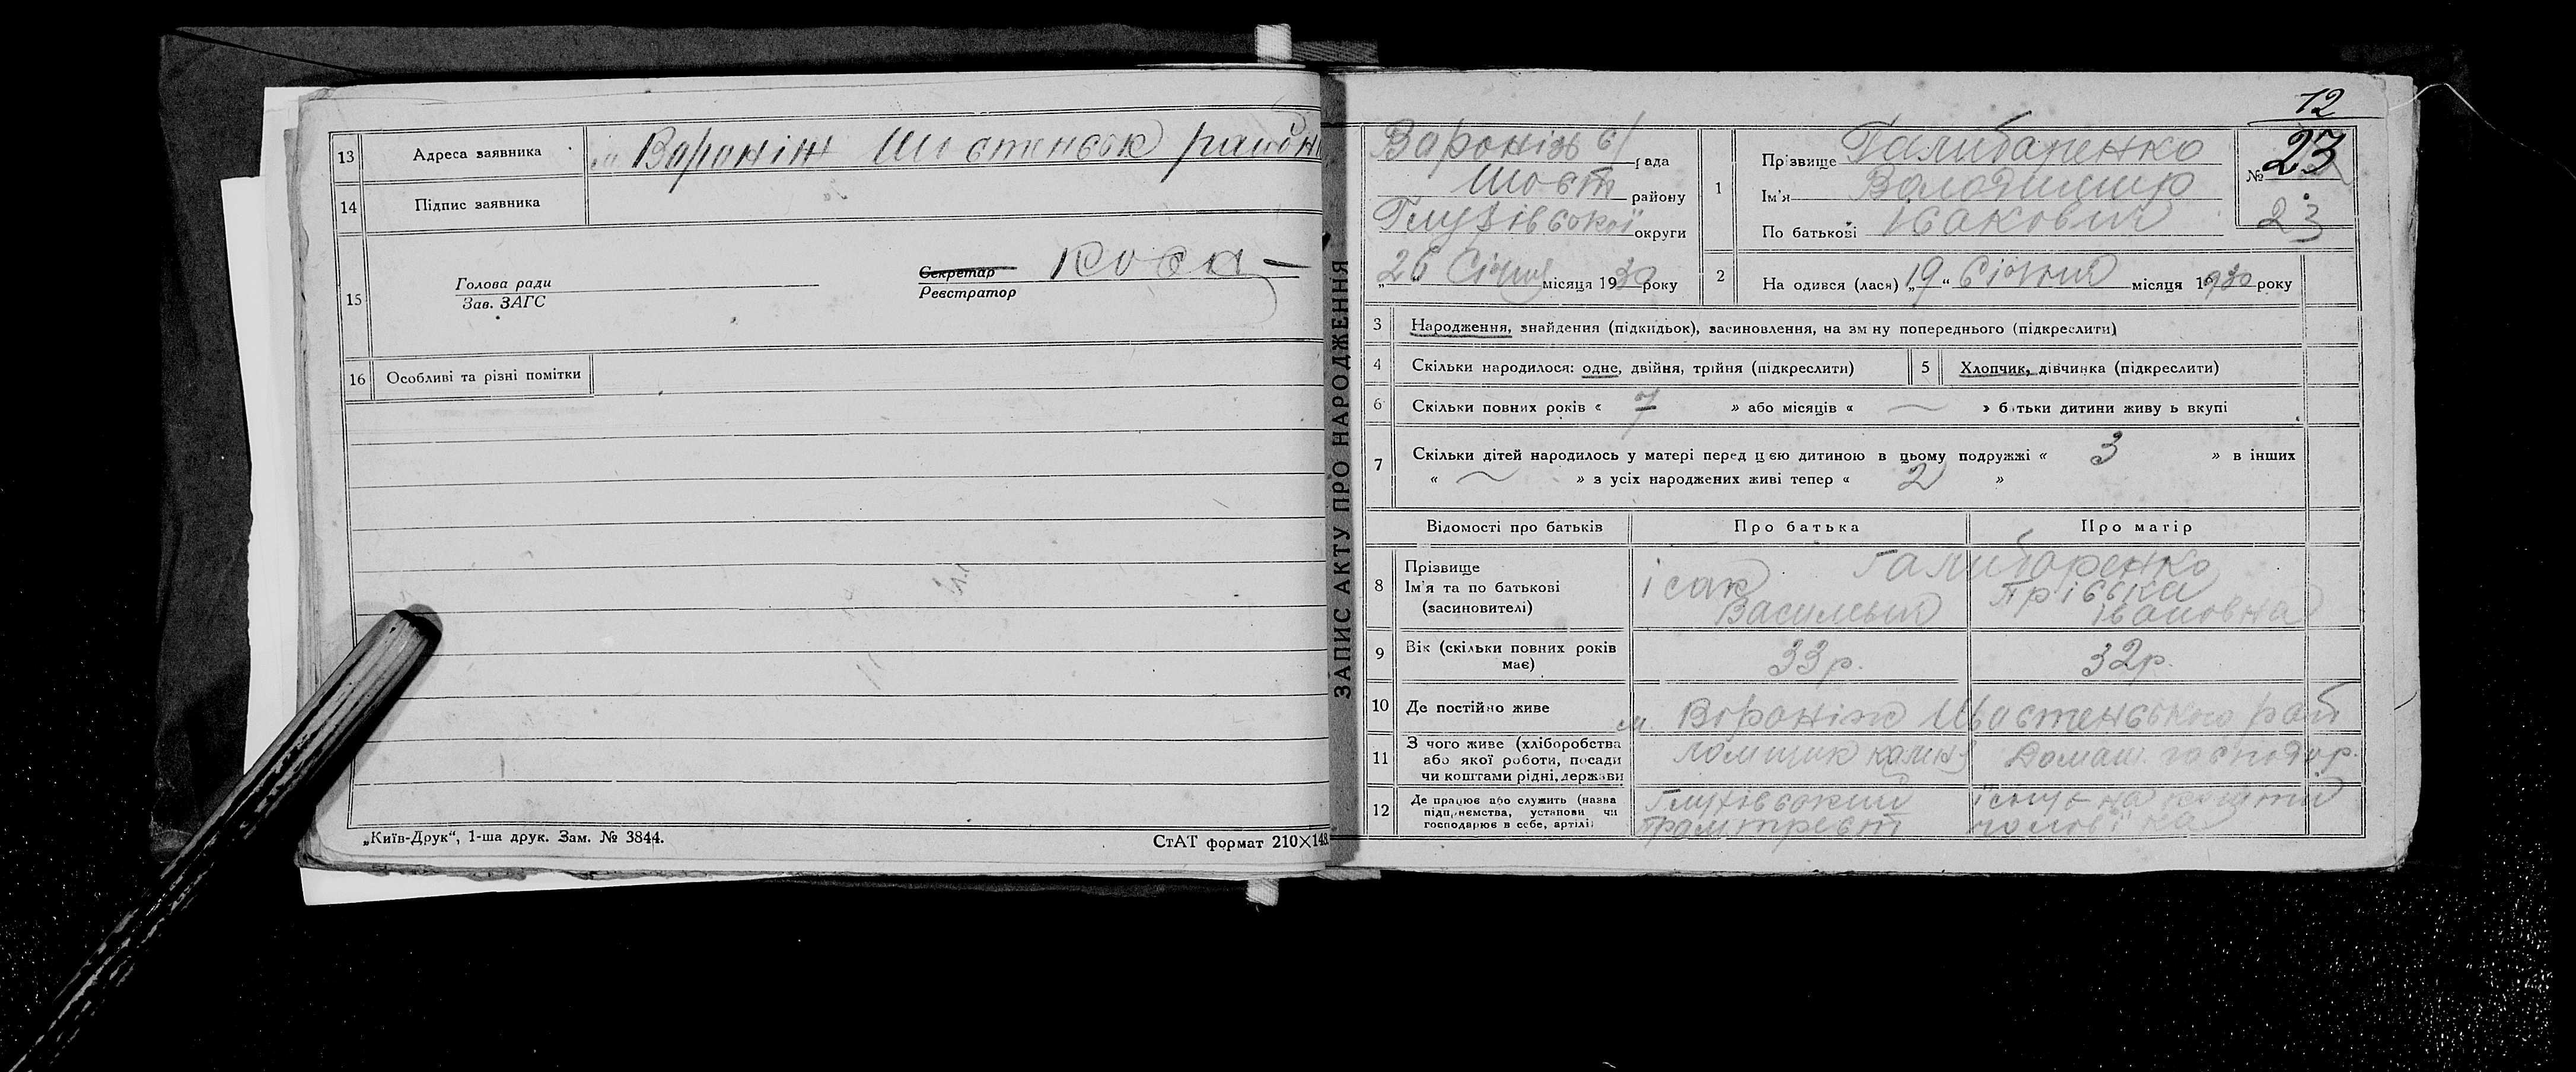 13 Адреса заявника м Вороніж Шостенськ район
14 Підпис заявника
15 Голова ради
Зав. ЗАГС
Секретар
Реєстратор
Коса
16 Особливі та різні помітки
„Київ-Друк“, 1-ша друк. Зам. № 3844.
СтАТ формат 210×148.
ЗАПИС АКТУ ПРО НАРОДЖЕННЯ
12
Вороніз с/ рада
Шост району
Глухівської округи
„26 Січня місяця 1930 року
1 Прізвище Галибаренко
Ім'я Володимир
По батькові Ісакович
№ 23
23
2 На одився (лася) „19“ Січня місяця 1930 року
3 Народження, знайдення (підкидьок), засиновлення, на зм ну попереднього (підкреслити)
4 Скільки народилося: одне, двійня, трійня (підкреслити)
5 Хлопчик, дівчинка (підкреслити)
6 Скільки повних років « 7 » або місяців « — » б тьки дитини живу ь вкупі
7 Скільки дітей народилось у матері перед цією дитиною в цьому подружжі « 3 » в інших
« — » з усіх народжених живі тепер « 2 »
Відомості про батьків Про батька Про матір
8 Прізвище
Ім'я та по батькові
(засиновителі)
Галибаренко
Ісак
Васильов
Пріська
Івановна
9 Вік (скільки повних років має) 33 р. 32 р.
10 Де постійно живе м. Вороніж Шостенського рай
11 З чого живе (хліборобства
або якої роботи, посади
чи коштами рідні, держави
Домаш. господар.
12 Де працює або служить (назва
підприємства, установи чи
господарює в себе, артілі)
Глухівський